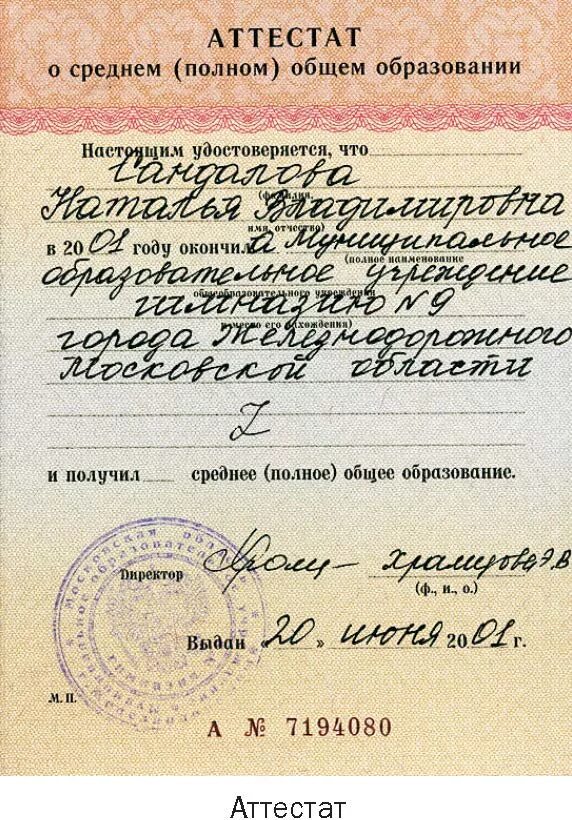 АТТЕСТАТ
о среднем (полном) общем образовании
Настоящим удостоверяется, что
Сандалова
(фамилия,
Наталья Владимировна
имя, отчество)
в 2001 году окончила Муниципальное
(полное наименование
образовательное учреждение
общеобразовательного учреждения
гимназию №9
и место его нахождения)
города Железнодорожного
Московской области
Z
и получил среднее (полное) общее образование.
Директор Храмцова Э.В
(ф., и., о.)
Выдан «20» июня 2001 г.
М. П.
А № 7194080
Аттестат